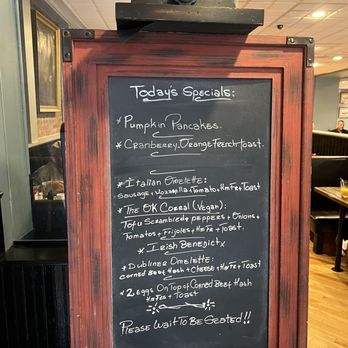 Today's Specials:
* Pumpkin Pancakes.
* Cranberry Orange French toast.
* Italian Omelette:
Sausage + Mozzarella + Tomato, HmFr + Toast
* The OK Corral (Vegan):
Tofu Scrambled + peppers + Onions +
Tomatos + Frijoles + HmFr + Toast
* Irish Benedict x
* Dubliner Omelette:
Corned Beef Hash + Cheese + HmFr + Toast
* 2 Eggs On Top of Corned Beef Hash
HmFr + Toast
Please Wait To Be Seated!!